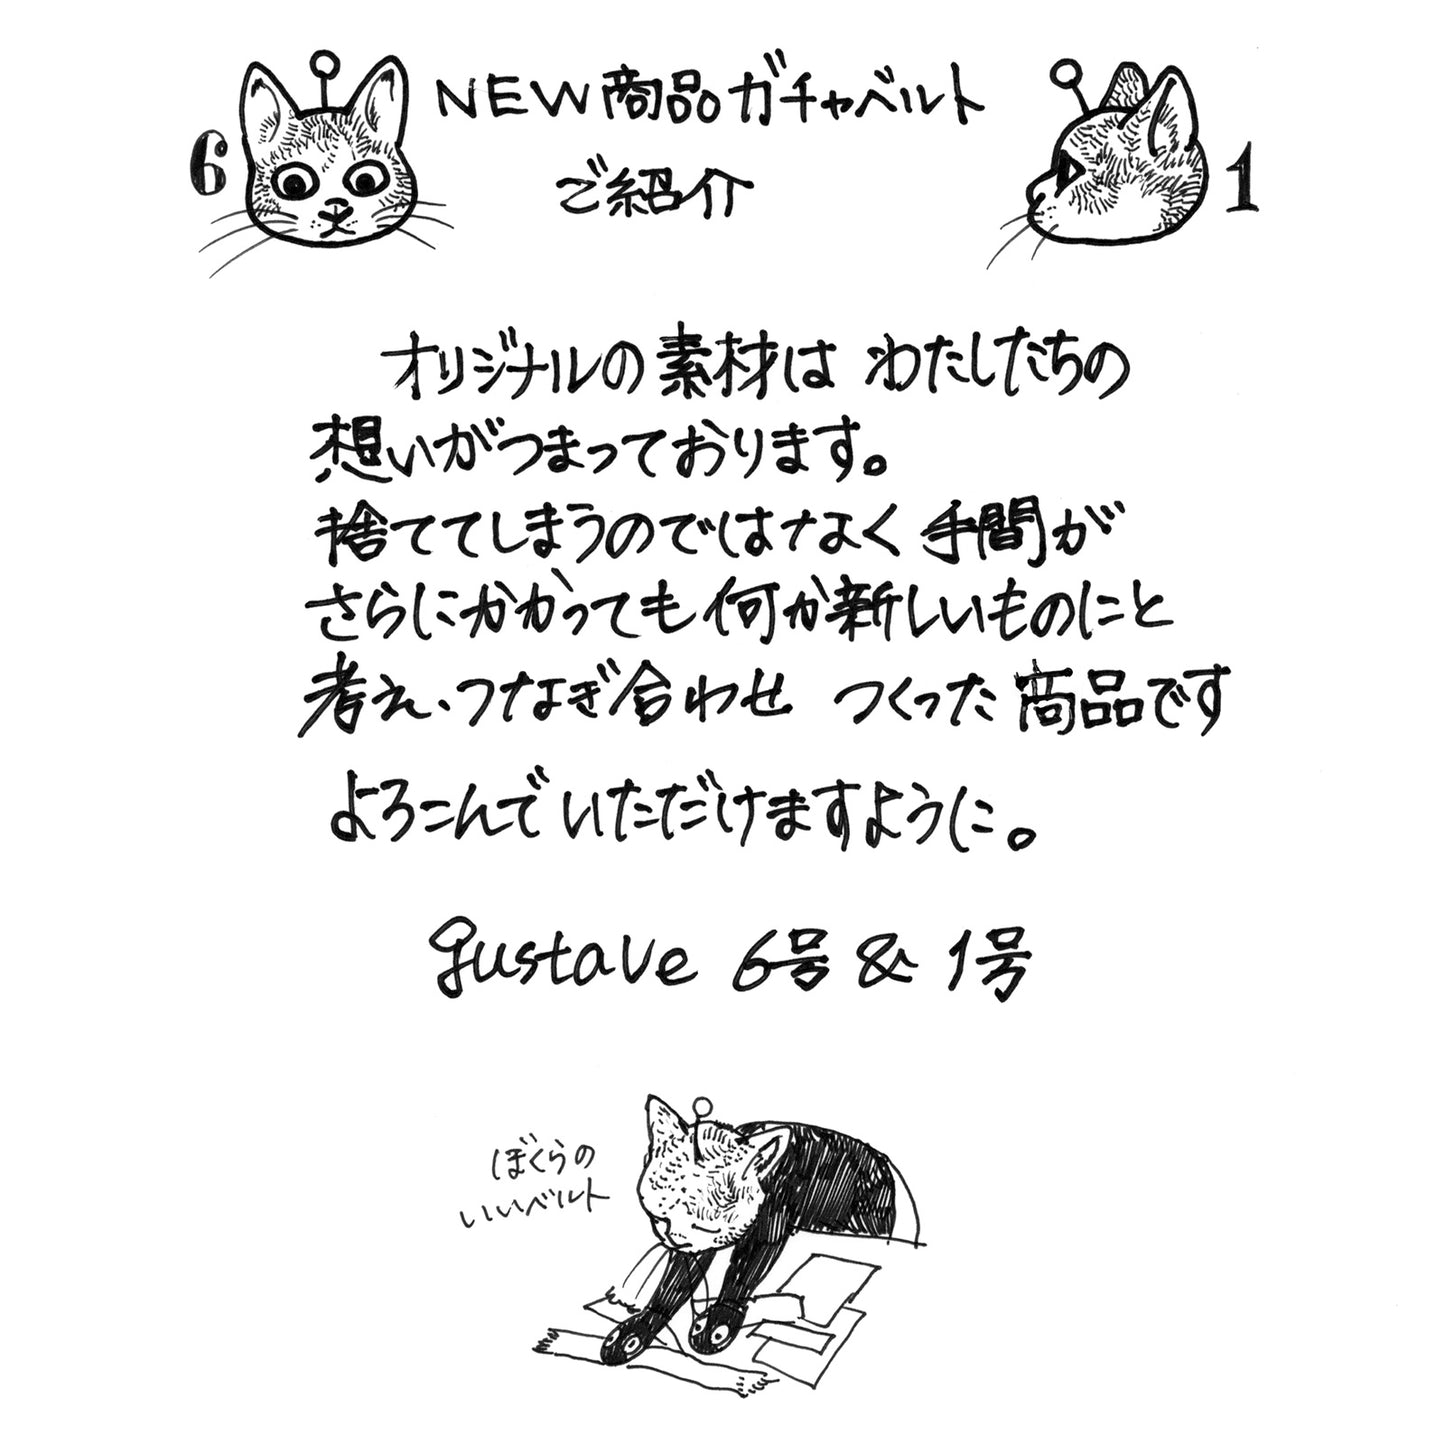 6
NEW商品ガチャベルト
ご紹介
1
オリジナルの素材は わたしたちの
想いがつまっております。
捨ててしまうのではなく 手間が
さらにかかっても 何か新しいものにと
考え、つなぎ合わせ つくった 商品です
よろこんで いただけますように。
gustave 6号 & 1号
ぼくらの
いいベルト